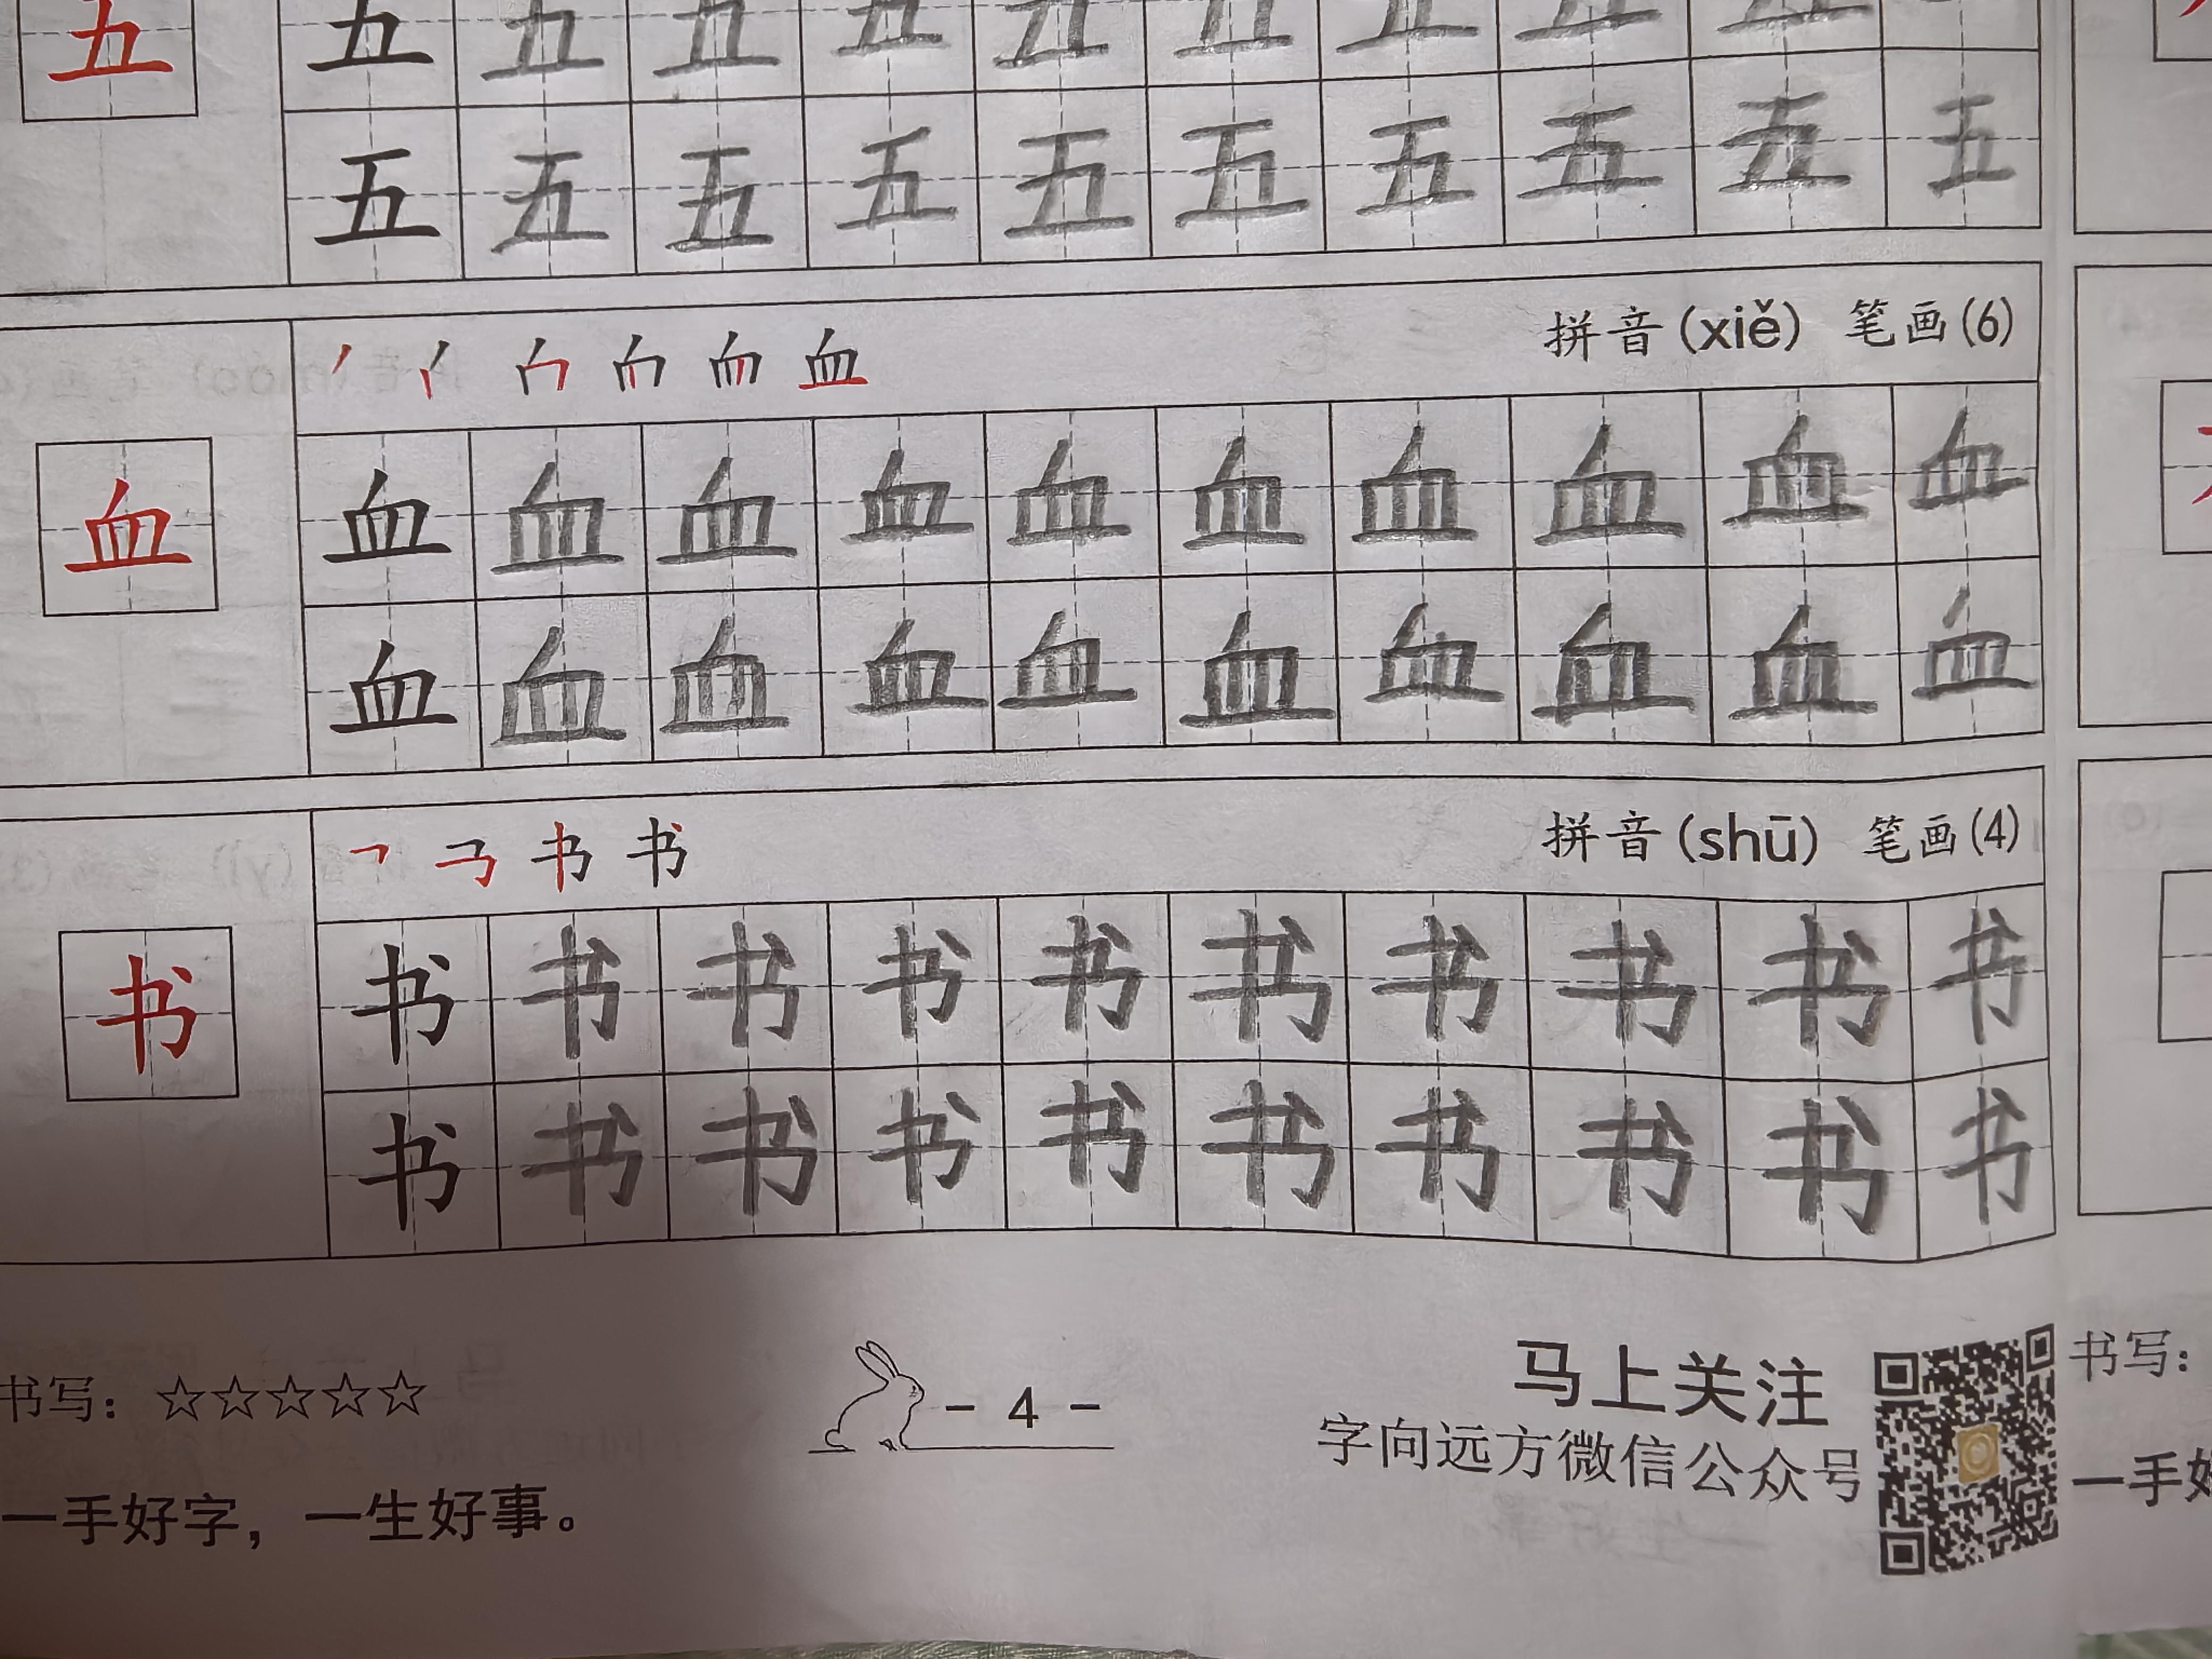 五 五 五 五 五 五 五 五 五 五 五
五 五 五 五 五 五 五 五 五 五
拼音(xiě) 笔画(6)
血
血 血 血 血 血 血 血 血 血 血 血
血 血 血 血 血 血 血 血 血 血
拼音(shū) 笔画(4)
书 书
书 书 书 书 书 书 书 书 书 书 书
书 书 书 书 书 书 书 书 书 书
书写：☆☆☆☆☆
一手好字，一生好事。
- 4 -
马上关注
字向远方微信公众号
书写：
一手好